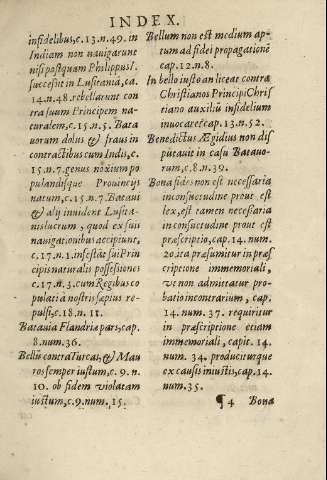 INDEX.
infidelibus, c. 13. n. 49. in
Indiam non nauigarunt
nisi postquam Philippus I.
successit in Lusitania, ca.
14. n. 48. rebellarunt con
tra suum Principem na-
turalem, c. 15. n. 5. Bata
uorum dolus & fraus in
contractibus cum Indis, c.
15. n. 7. genus noxium po
pulandisque Prouincijs
natum, c. 15. n. 7. Bataui
& alij inuident Lusita-
nis lucrum, quod ex suis
nauigationibus accipiunt,
c. 17. n. 1. infestãt sui Prin
cipis naturalis possessiones
c. 17. n. 3. cum Regibus co
pulati a nostris sæpius re-
pulsi, c. 18. n. 11.
Batauia Flandriæ pars, cap.
8. num. 36.
Bellũ contra Turcas, & Mau
ros semper iustum, c. 9. n.
10. ob fidem violatam
iustum, c. 9. num. 15.
Bellum non est medium ap-
tum ad fidei propagationẽ
cap. 12. n. 8.
In bello iusto an liceat contra
Christianos Principi Chris
tiano auxiliũ infidelium
inuocare? cap. 13. n. 52.
Benedictus Ægidius non dis
putauit in casu Batauo-
rum, c. 8. n. 39.
Bona fides non est necessaria
in consuetudine prout est
lex, est tamen necessaria
in consuetudine prout est
præscriptio, cap. 14. num.
20. ita præsumitur in præs
criptione immemoriali,
vt non admittatur pro-
batio in contrarium, cap.
14. num. 37. requiritur
in præscriptione etiam
immemoriali, capit. 14.
num. 34. produciturque
ex causis iniustis, cap. 14.
num. 35.
¶ 4 Bona